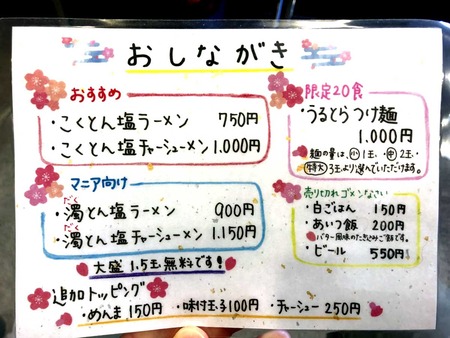 おしながき
おすすめ
・こくとん塩ラーメン 750円
・こくとん塩チャーシューメン 1,000円
マニア向け
だく
・濁とん塩ラーメン 900円
だく
・濁とん塩チャーシューメン 1,150円
大盛1.5玉無料です!
追加トッピング
・めんま150円 ・味付玉子100円 ・チャーシュー250円
限定20食
・うるとらつけ麺
1,000円
麺の量は、小1玉、中2玉、
特大3玉より選んでいただけます。
売り切れゴメンなさい
・白ごはん 150円
・あいつ飯 200円
バター風味のたきこみご飯です。
・ビール 550円